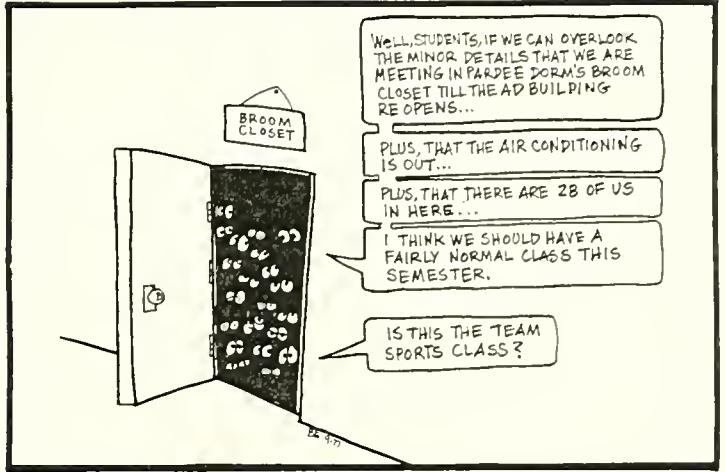 BROOM
CLOSET
WELL, STUDENTS, IF WE CAN OVERLOOK
THE MINOR DETAILS THAT WE ARE
MEETING IN PARDEE DORM'S BROOM
CLOSET TILL THE AD BUILDING
REOPENS...
PLUS, THAT THE AIR CONDITIONING
IS OUT...
PLUS, THAT THERE ARE 28 OF US
IN HERE...
I THINK WE SHOULD HAVE A
FAIRLY NORMAL CLASS THIS
SEMESTER.
IS THIS THE TEAM
SPORTS CLASS?